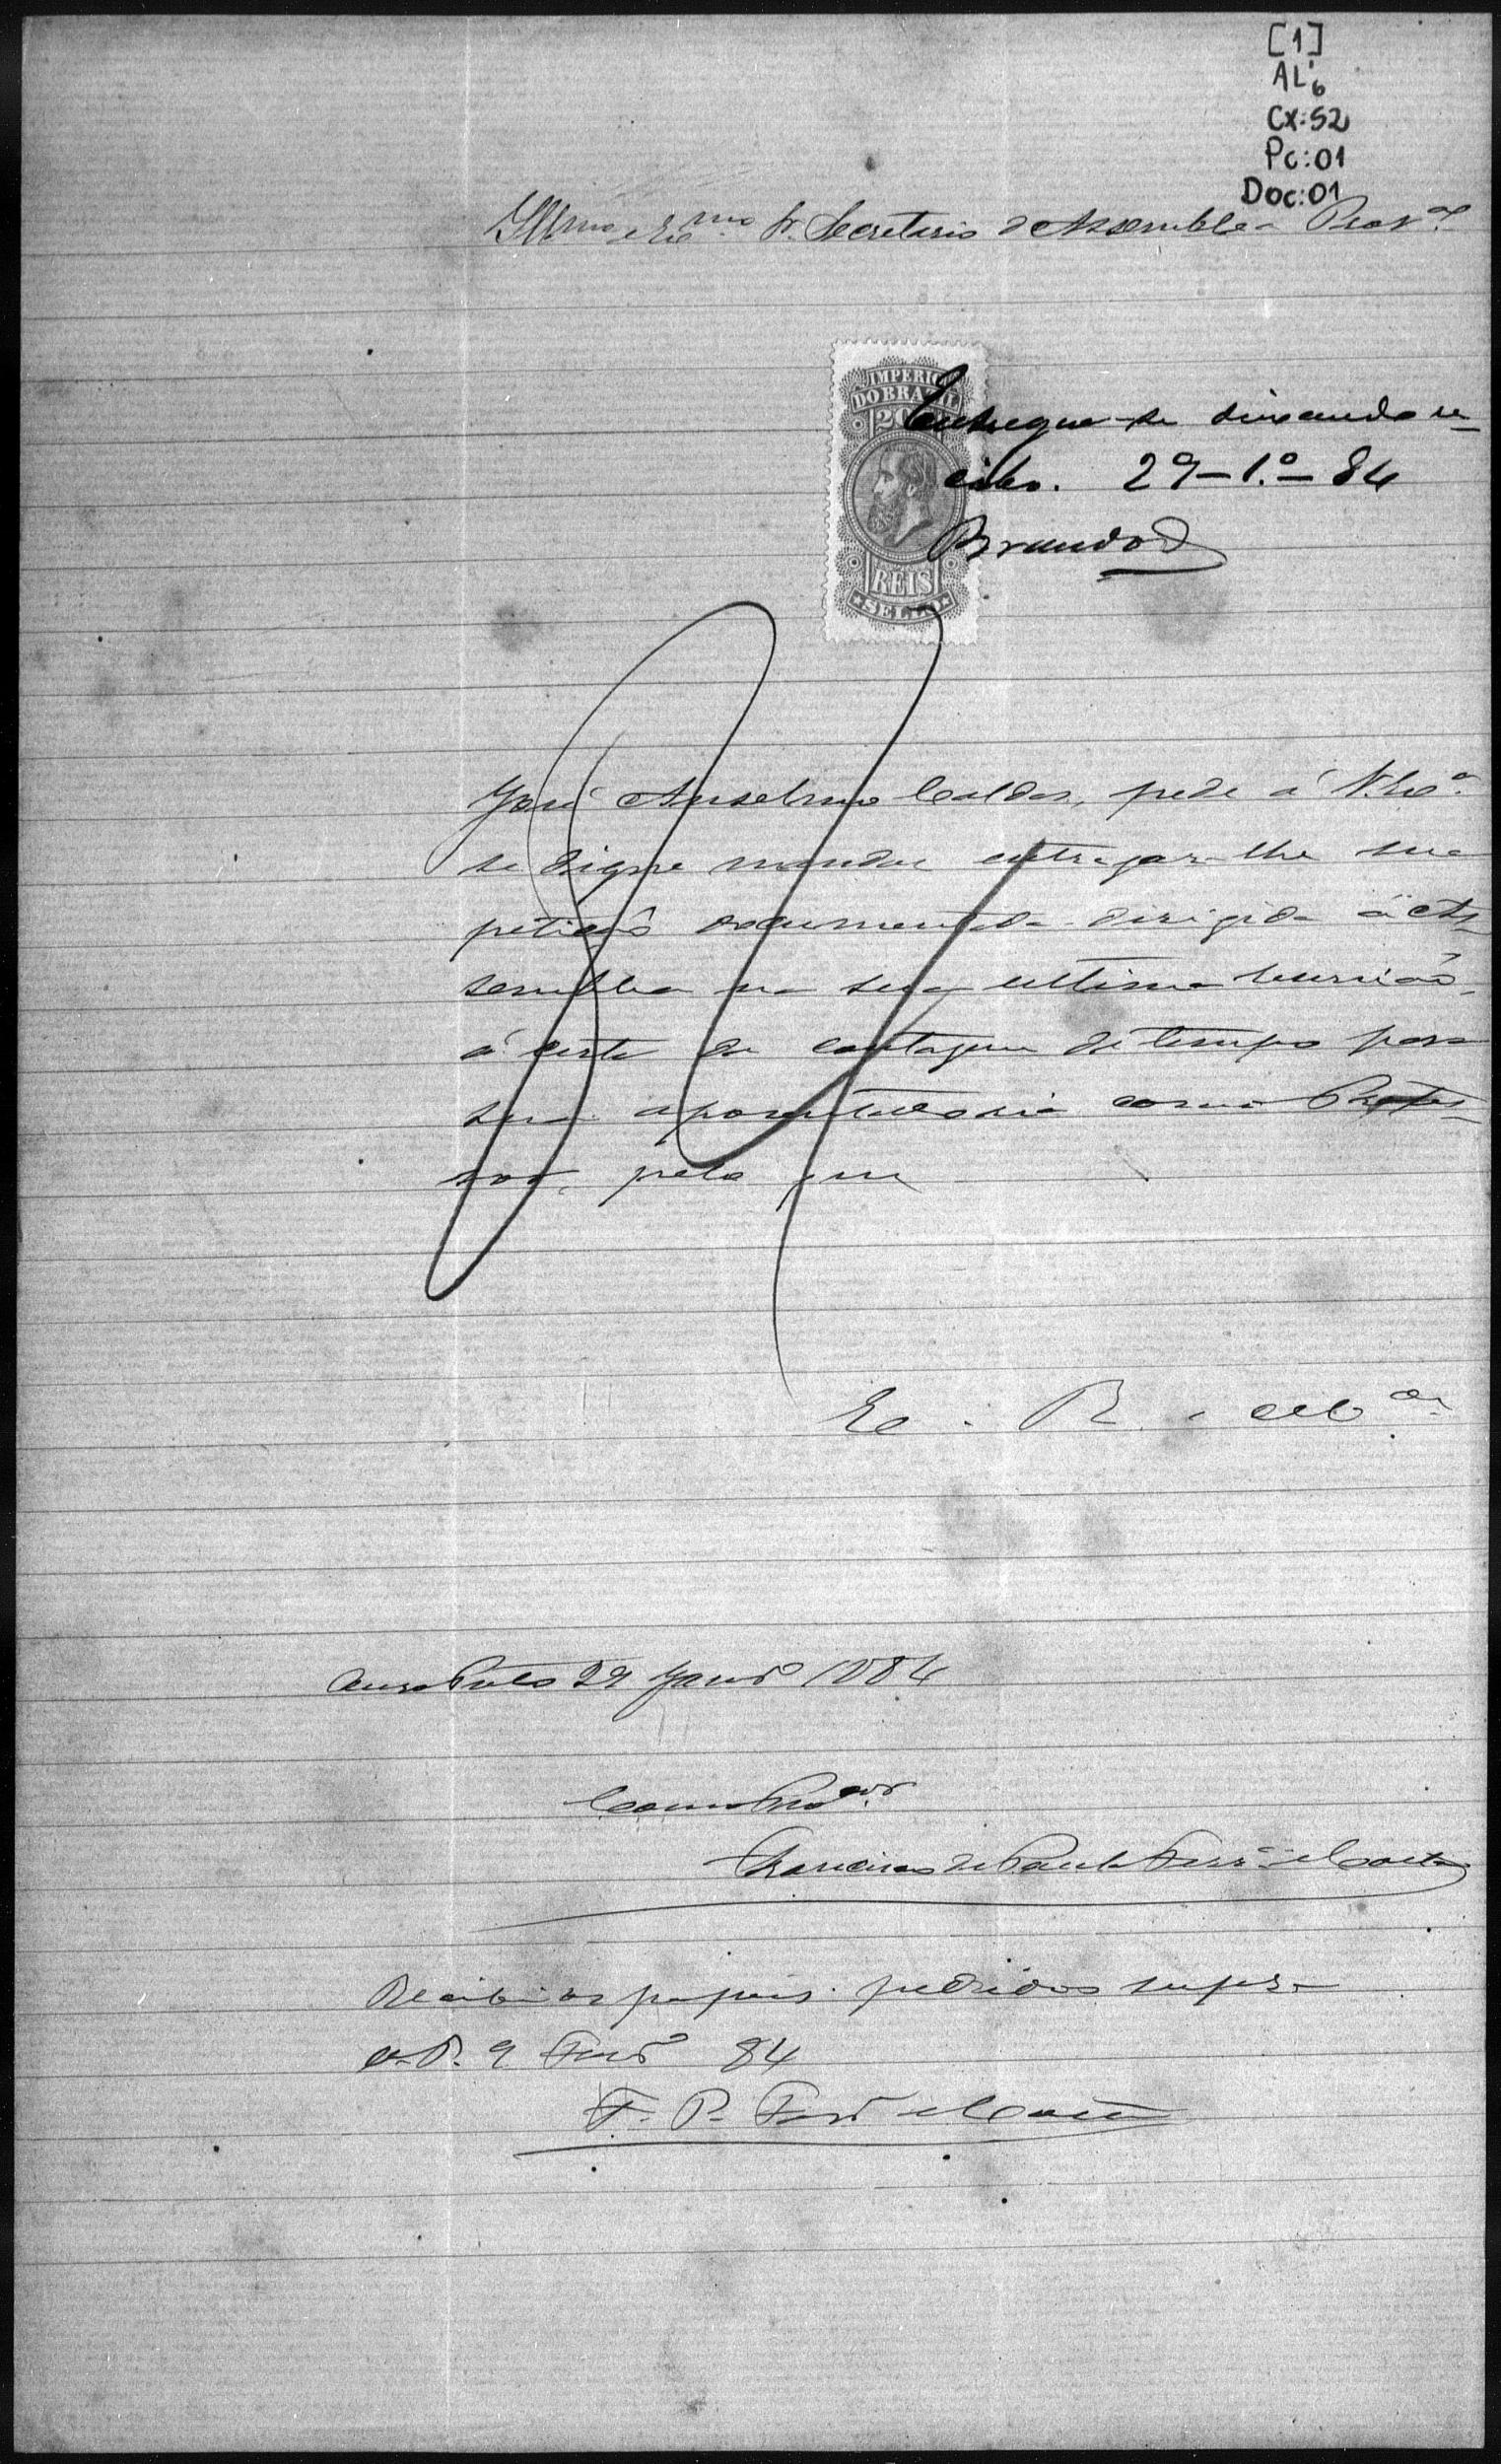 [1]
AL6
Cx:52
Pc:01
Doc:01
Illmo e Exmo Sr. Secretario d'Assemblea Proval
IMPERIO
DO BRAZIL
200
REIS
SELLO
Entregue-se deixando re-
cibo. 29-1.º-84
Brandão
José Anselmo Caldas, pede á V. Exª
se digne mandar entregar-lhe sua
petição documentada dirigida á As-
semblea na sua ultima reunião,
á cerca da contagem de tempo para
sua aposentadoria como Profes-
sor, pelo que
E. R. Mce
Ouro Preto 29 Janrº 1884
Como Procor
Francisco de Paula Ferrª e Costa
Recebi os papeis pedidos supra
O. P. 9 Fevrº 84
F. P. Ferrª e Costa